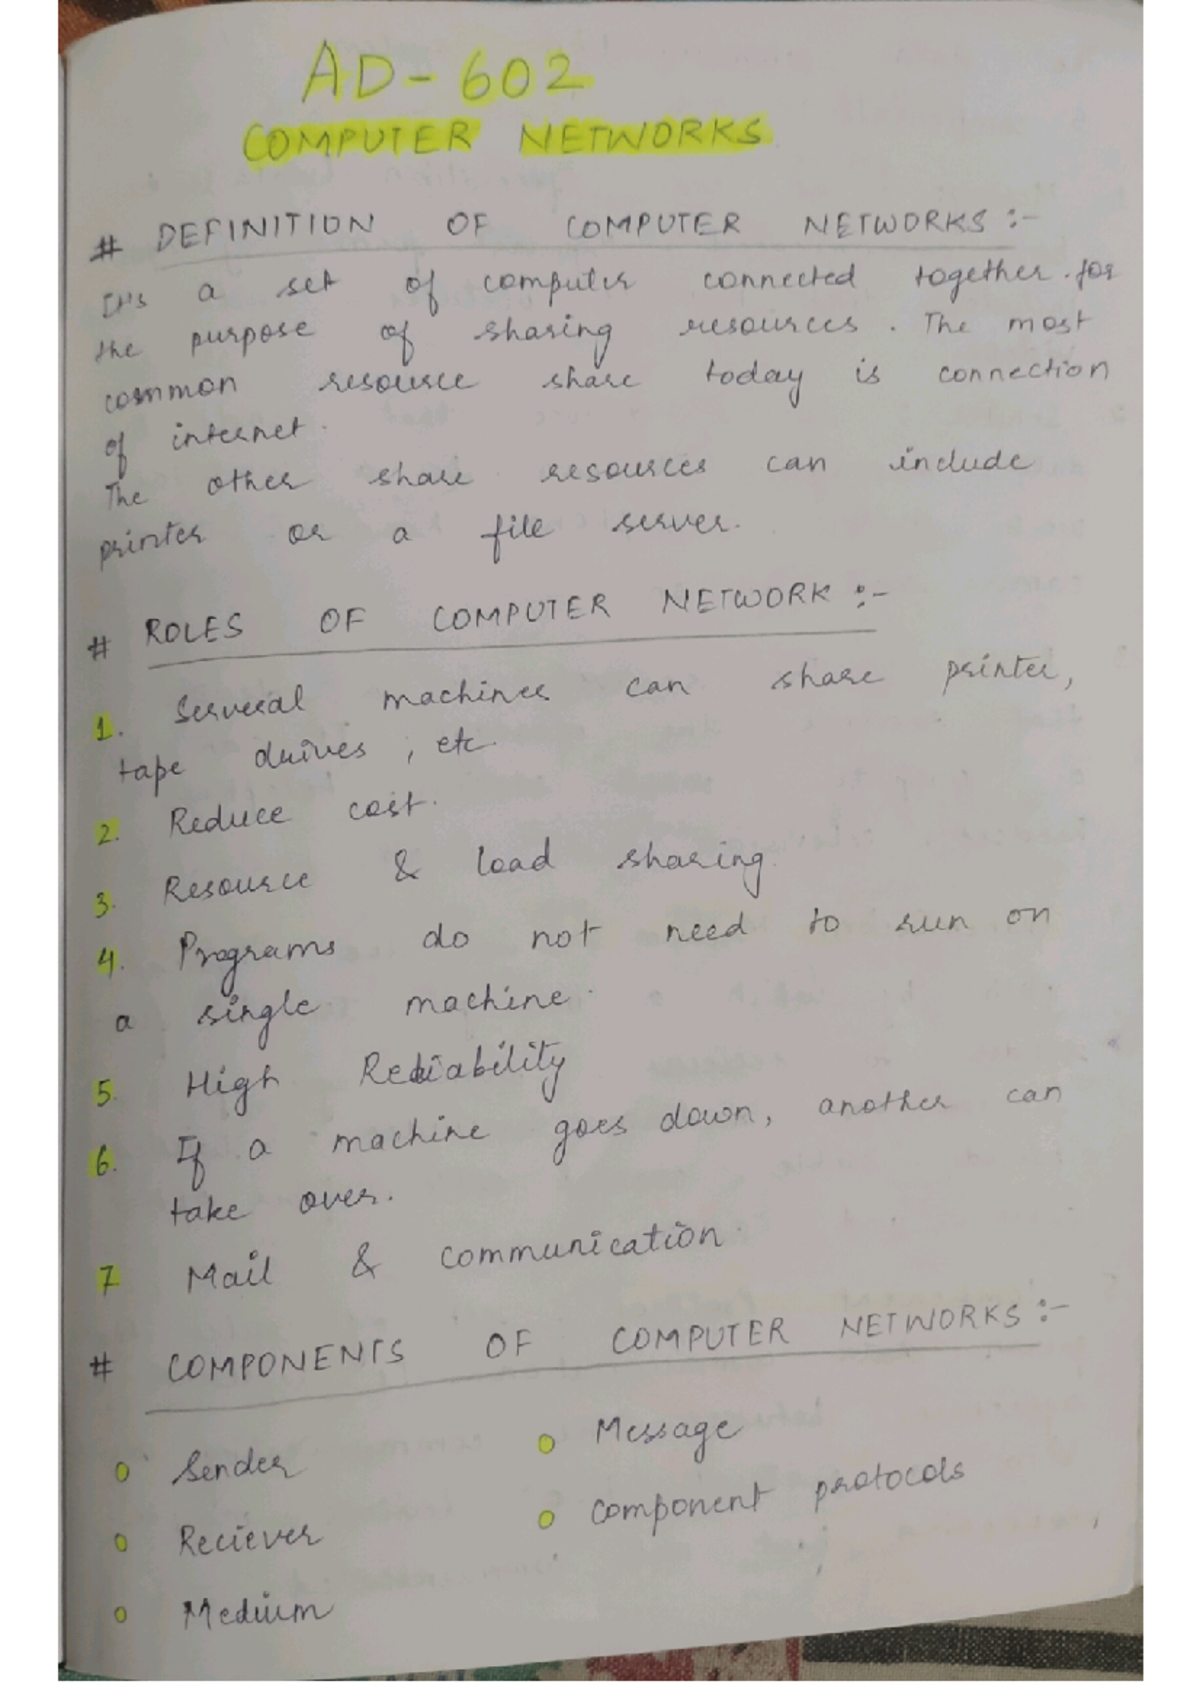 AD-602
COMPUTER NETWORKS
# DEFINITION OF COMPUTER NETWORKS :-
It's a set of computer connected together for
the purpose of sharing resources. The most
common resource share today is connection
of internet.
The other share resources can include
printer or a file server.
# ROLES OF COMPUTER NETWORK :-
1. Serveral machines can share printer,
tape drives, etc.
2. Reduce cost.
3. Resource & load sharing.
4. Programs do not need to run on
a single machine.
5. High Reliability
6. If a machine goes down, another can
take over.
7 Mail & communication.
# COMPONENTS OF COMPUTER NETWORKS :-
o Sender
o Message
o Reciever
o Component protocols
o Medium